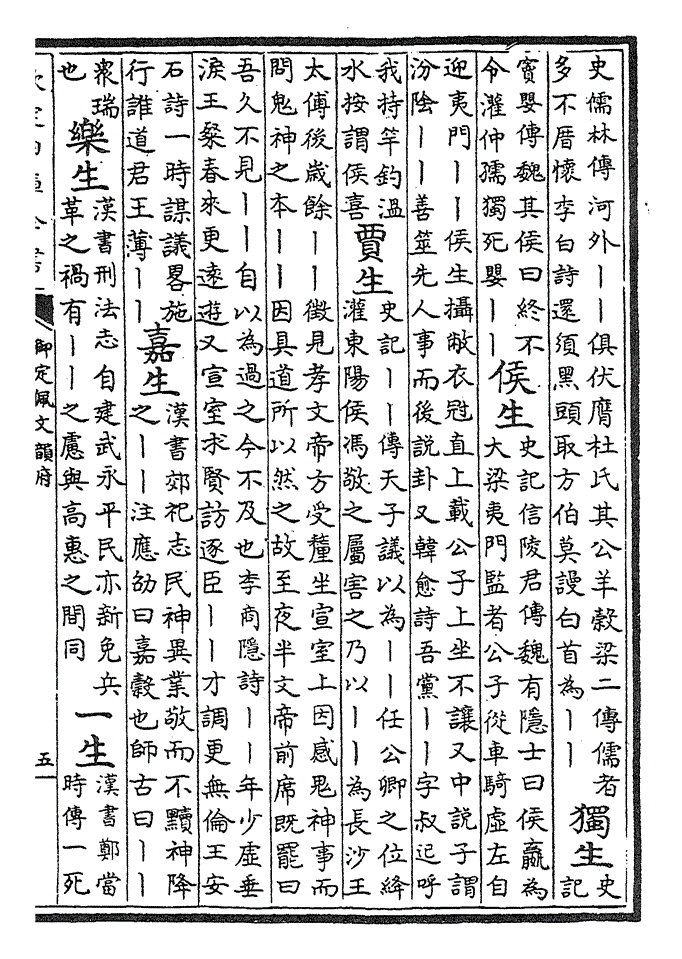 史儒林傳河外｜｜俱伏膺杜氏其公羊穀梁二傳儒者
多不厝懷李白詩還須黑頭取方伯莫謾白首為｜｜
獨生
史
記
竇嬰傳魏其侯曰終不
令灌仲孺獨死嬰｜｜
侯生
史記信陵君傳魏有隱士曰侯嬴為
大梁夷門監者公子從車騎虛左自
迎夷門｜｜侯生攝敝衣冠直上載公子上坐不讓又中說子謂
汾陰｜｜善筮先人事而後說卦又韓愈詩吾黨｜｜字叔𨒪呼
我持竿釣溫
水按謂侯喜
賈生
史記｜｜傳天子議以為｜｜任公卿之位絳
灌東陽侯馮敬之屬害之乃以｜｜為長沙王
太傅後歲餘｜｜徵見孝文帝方受釐坐宣室上因感鬼神事而
問鬼神之本｜｜因具道所以然之故至夜半文帝前席既罷曰
吾久不見｜｜自以為過之今不及也李商隱詩｜｜年少虛垂
淚王粲春來更遠遊又宣室求賢訪逐臣｜｜才調更無倫王安
石詩一時謀議畧施
行誰道君王薄｜｜
嘉生
漢書郊祀志民神異業敬而不黷神降
之｜｜注應劭曰嘉穀也師古曰｜｜
衆瑞
也
樂生
漢書刑法志自建武永平民亦新免兵
革之禍有｜｜之慮與高惠之間同
一生
漢書鄭當
時傳一死
御定佩文韻府
五